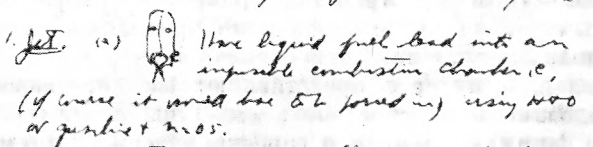 1. Jet. (a) Have liquid fuel lead into an
infusible combustion chamber, c,
(of course it would have to be forced in) using
or gasoline +